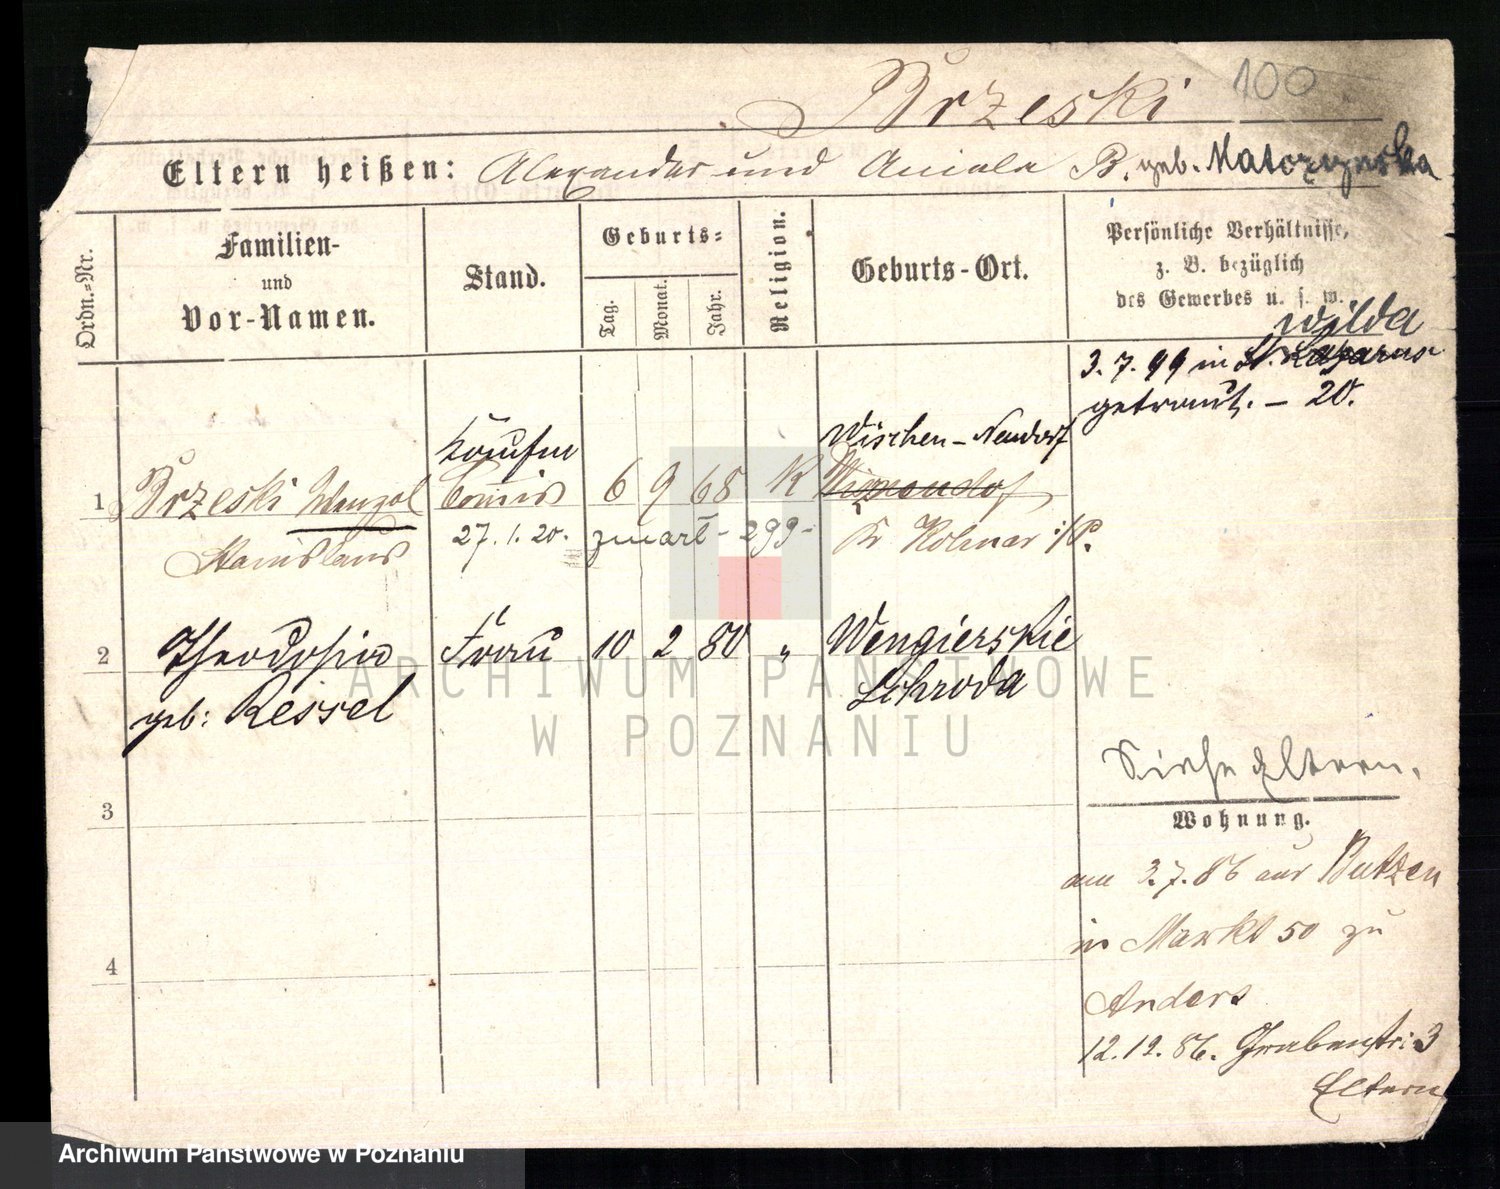 100
Brzeski
Eltern heißen: Alexander und Aniela B. geb. Matoczynska
Ordn.-Nr.
Familien-
und
Vor-Namen.
Stand.
Geburts-
Tag.
Monat.
Jahr.
Religion.
Geburts-Ort.
Persönliche Verhältnisse,
z. B. bezüglich
des Gewerbes u. s. w.
Wilda
3. 7. 99 in St. Lazarus
getraut. – 20.
Kaufm
Wischen-Neudorf
1 Brzeski Wenzel Commis 6 9 68 K
Stanislaus 27. 1. 20. Kr Kolmar i/P.
2 Theodosia Frau 10 2 80 " Wengierskie
geb: Kessel Schroda
3
4
Siehe Eltern.
Wohnung.
am 3.7.86 aus Butzen
in Markt 50 zu
Anders
12.12.86. Grabenstr: 3
Eltern
ARCHIWUM PAŃSTWOWE
W POZNANIU
Archiwum Państwowe w Poznaniu